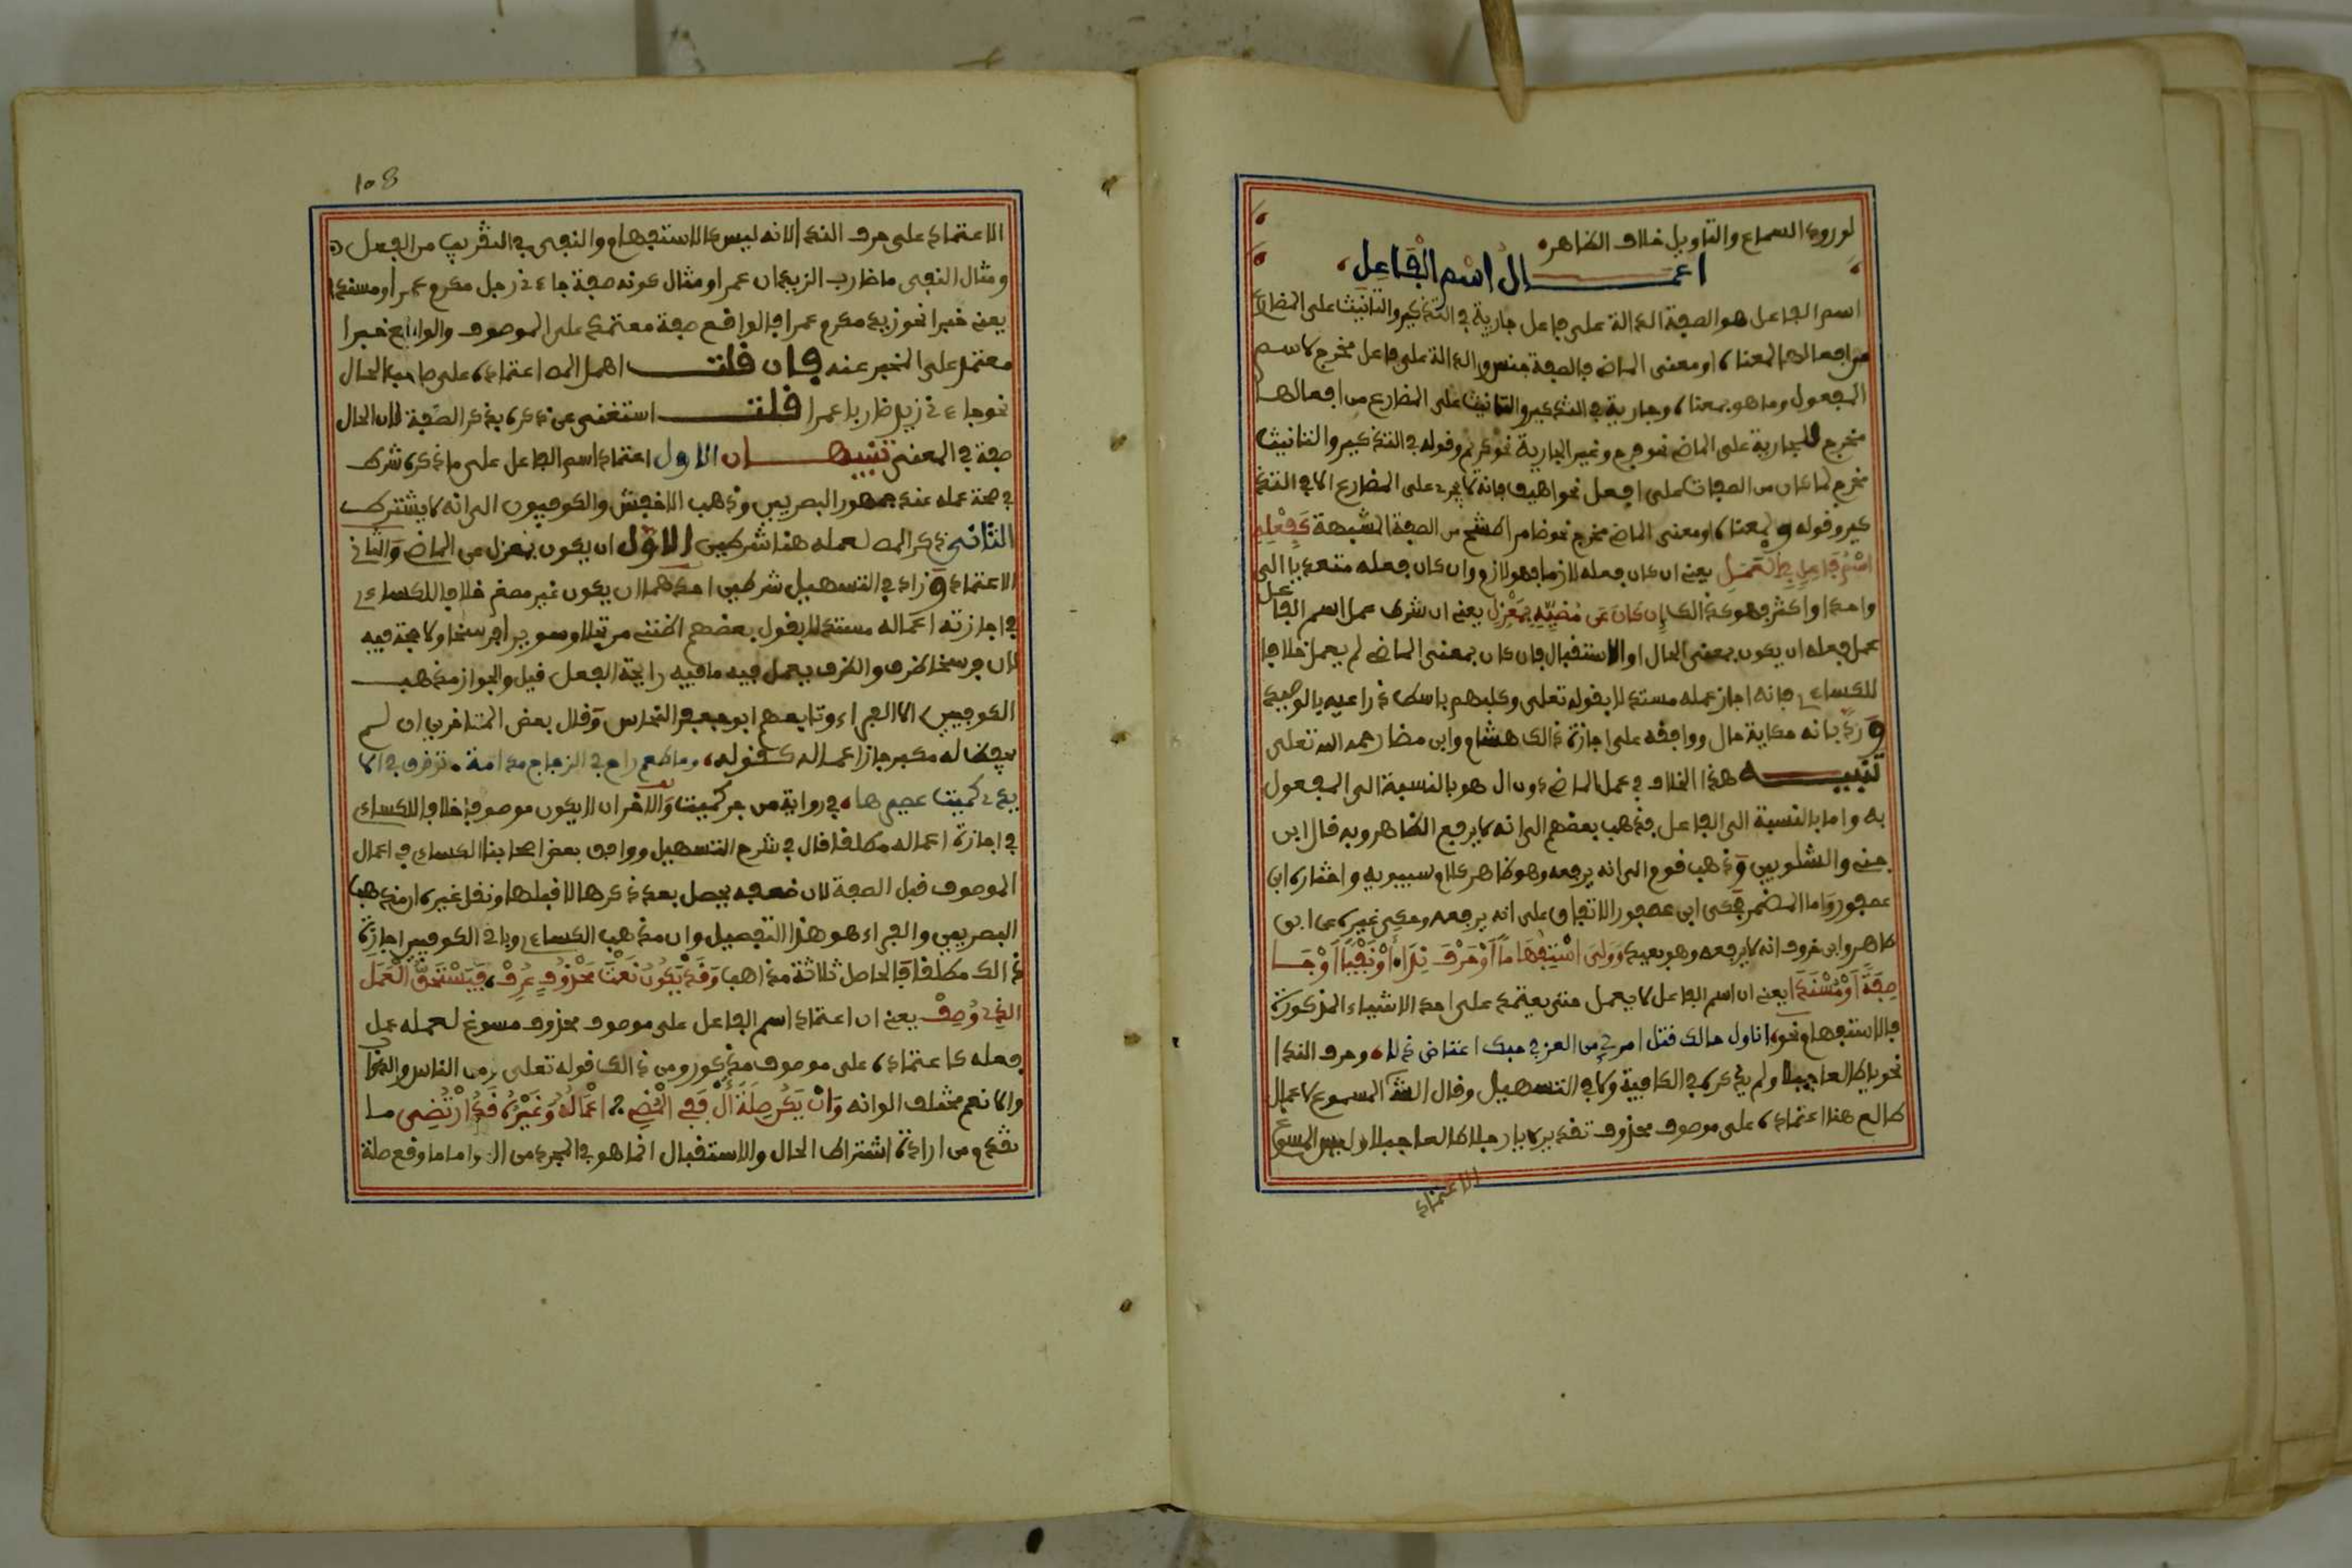 لورود السماع والتاويل خلاف الظاهر
اعمال اسم الفاعل
اسم الفاعل هو الصفة الدالة على فاعل جارية في التذكير والتانيث على المضارع
من افعالها لمعناه او معنى الماضي فالصفة جنس والدالة على فاعل مخرج لاسم
المفعول وما هو بمعناه وجارية في التذكير والتانيث على المضارع من افعالها
مخرج للجارية على الماضي نحو فرح وغير الجارية نحو كريم وقوله في التذكير والتانيث
مخرج لما كان من الصفات على افعل نحو اهيف فانه لا يجري على المضارع الا في التذ
كير وقوله لمعناه او معنى الماضي مخرج نحو ضامر الكشح من الصفة المشبهة كَفِعْلِهِ
اسْمُ فَاعِلٍ فِي الْعَمَلِ يعني ان كان فعله لازما فهو لازم وان كان فعله متعديا الى
واحد او اكثر فهو كذالك إِن كَانَ عَن مُضِيِّهِ بِمَعْزِلِ يعني ان شرط عمل اسم الفاعل
عمل فعله ان يكون بمعنى الحال او الاستقبال فان كان بمعنى الماضي لم يعمل خلافا
للكساءي فانه اجاز عمله مستدلا بقوله تعلى وكلبهم باسط ذراعيه بالوصيد
ورد بانه حكاية حال ووافقه على اجازة ذالك هشام وابن مضا رحمه الله تعلى
تنبيه هذا الخلاف في عمل الماضي دون ال هو بالنسبة الى المفعول
به واما بالنسبة الى الفاعل فذهب بعضهم الى انه لا يرفع الظاهر وبه قال ابن
جني والشلوبين وذهب قوم الى انه يرفعه وهو ظاهر كلام سيبويه واختاره ابن
عصفور واما المضمر فحكى ابن عصفور الاتفاق على انه يرفعه وحكى غيره عن ابن
طاهر وابن خروف انه لا يرفعه وهو بعيد وَوَلِيَ اسْتِفْهَاماً أَوْ حَرْفَ نِدَا أَوْ نَفْياً أَوْ جَا
صِفَةً أَوْ مُسْنَدَا يعني ان اسم الفاعل لا يعمل حتى يعتمد على احد الاشياء المذكورة
فالاستفهام نحو اناول رجالك قتل امرئ من العز في حبك اعتاض ذلا وحرف الندا
نحو يا طالعا جبلا ولم يذكره في الكافية ولا في التسهيل وقال الش المسوغ لاعمال
طالع هنا اعتماده على موصوف محذوف تقديره يا رجلا طالعا جبلا وليس المسوغ
الاعتماد
108
الاعتماد على حرف الندا لانه ليس كالاستفهام والنفي في التقريب من الفعل
ومثال النفي ما ضارب الزيدان عمرا ومثال كونه صفة جاءني رجل مكرم عمرا ومسندا
يعني خبرا نحو زيد مكرم عمرا فالواقع صفة معتمد على الموصوف والواقع خبرا
معتمد على المخبر عنه فان قلت اهمل المص اعتماده على صاحب الحال
نحو جاءني زيد ضاربا عمرا قلت استغنى عن ذكره بذكر الصفة لان الحال
صفة في المعنى تنبيهان الاول اعتماد اسم الفاعل على ما ذكر شرط
في صحة عمله عند جمهور البصريين وذهب الاخفش والكوفيون الى انه لا يشترط
الثاني ذكر المص لعمله هنا شرطين الاول ان يكون بمعزل عن الماضي والثاني
الاعتماد وزاد في التسهيل شرطين احدهما ان يكون غير مصغر خلافا للكساءي
في اجازته اعماله مستدلا بقول بعضهم اظنني مرتحلا وسويرا فرسخا ولا حجة فيه
لان فرسخا ظرف والظرف يعمل فيه ما فيه رايحة الفعل قيل والجواز مذهب
الكوفيين الا الفراء وتابعهم ابو جعفر النحاس وقال بعض المتاخرين ان لم
يحفظ له مكبر جاز اعماله كقوله وما طعم راح في الزجاج مدامة ترقرق في الا
يدي كميت عصيرها في رواية من جر كميت والاخر ان لا يكون موصوفا خلافا للكساءي
في اجازة اعماله مطلقا قال في شرح التسهيل ووافق بعض اصحابنا الكساءي في اعمال
الموصوف قبل الصفة لان ضعفه يحصل بعد ذكرها لا قبلها ونقل غيره ان مذهب
البصريين والفراء هو هذا التفصيل وان مذهب الكساءي وباقي الكوفيين اجازة
ذالك مطلقا فالحاصل ثلاثة مذاهب وَقَدْ يَكُونُ نَعْتَ مَحْذُوفٍ عُرِفْ فَيَسْتَحِقُّ الْعَمَلَ
الذِي وُصِفْ يعني ان اعتماد اسم الفاعل على موصوف محذوف مسوغ لعمله عمل
فعله كاعتماده على موصوف مذكور ومن ذالك قوله تعلى ومن الناس والدواب
والانعم مختلف الوانه وَانْ يَكُن صِلَةَ أَلْ فَفِي الْمُضِي اعْمَالُهُ وَغَيْرِهِ قَدُ ارْتُضِي ما
تقدم من ارادة اشتراط الحال والاستقبال انما هو في المجرد من ال واما ما وقع صلة